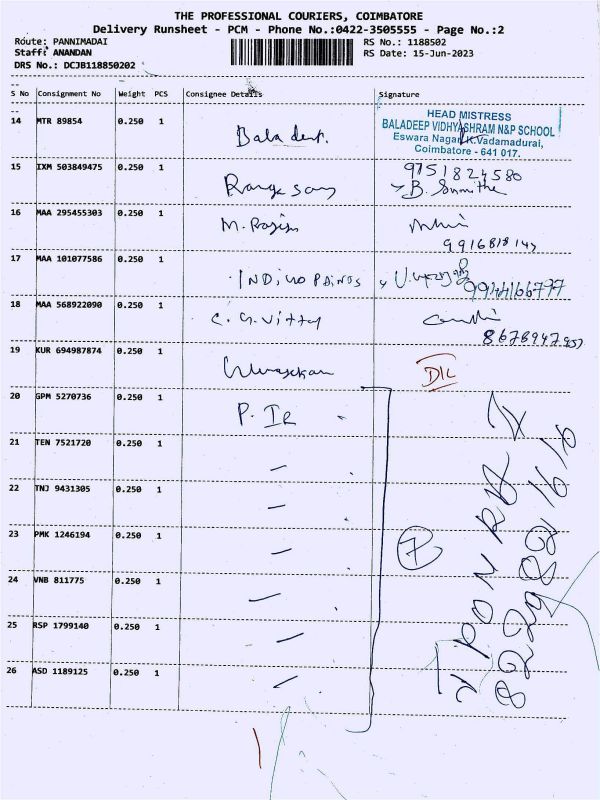 THE PROFESSIONAL COURIERS, COIMBATORE
Delivery Runsheet - PCM - Phone No.:0422-3505555 - Page No.:2
Route: PANNIMADAI RS No.: 1188502
Staff: ANANDAN RS Date: 15-Jun-2023
DRS No.: DCJB118850202
S No Consignment No Weight PCS Consignee Details Signature
14 MTR 89854 0.250 1 Bala dent.
HEAD MISTRESS
BALADEEP VIDHYASHRAM N&P SCHOOL
Eswara Nagar, K.Vadamadurai,
Coimbatore - 641 017.
15 IXM 503849475 0.250 1 9751824580
16 MAA 295455303 0.250 1 M.
9916818147
17 MAA 101077586 0.250 1 INDIGO PAINTS
18 MAA 568922090 0.250 1 C. G. Vittal
19 KUR 694987874 0.250 1 D/L
20 GPM 5270736 0.250 1 P.
21 TEN 7521720 0.250 1 —
22 TNJ 9431305 0.250 1 —
23 PMK 1246194 0.250 1 — 7
24 VNB 811775 0.250 1 —
25 RSP 1799140 0.250 1 —
26 ASD 1189125 0.250 1 —